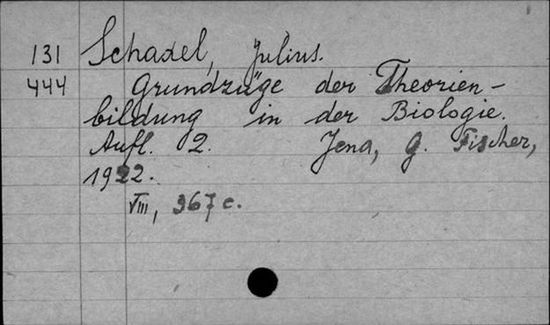 131 Schaxel, Julius.
444 Grundzüge der Theorien-
bildung in der Biologie.
Aufl. 2. Jena, G. Fischer,
1922.
VIII, 367 c.